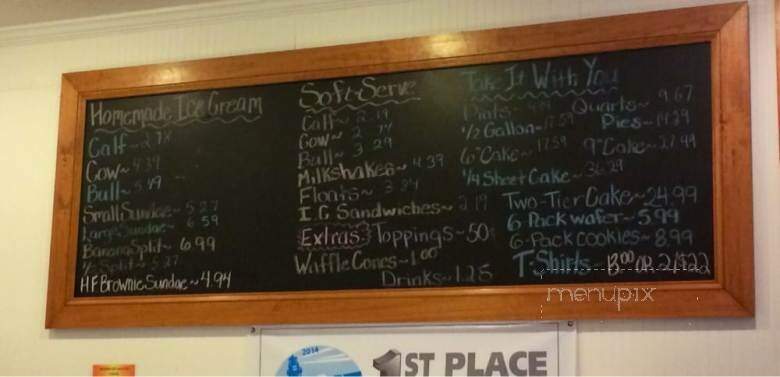 Homemade Ice Cream
Calf~2.74
Cow~4.39
Bull~5.49
Small Sundae~5.27
Large Sundae~6.59
Banana Split~6.99
½ Split~5.27
H.F. Brownie Sundae~4.94
Soft-Serve
Calf~2.19
Cow~2.74
Bull~3.29
Milkshakes~4.39
Floats~3.84
I.C. Sandwiches~2.19
Extras Toppings~50¢
Waffle Cones~1.00
Drinks~1.25
Take It With You
Pints~ Quarts~9.67
½ Gallon~17.59 Pies~14.29
6" Cake~17.59 9" Cake~27.49
¼ Sheet Cake~36.29
Two-Tier Cake~24.99
6 Pack wafer~5.99
6-Pack cookies~8.99
T-Shirts
menupix
2014
1ST PLACE